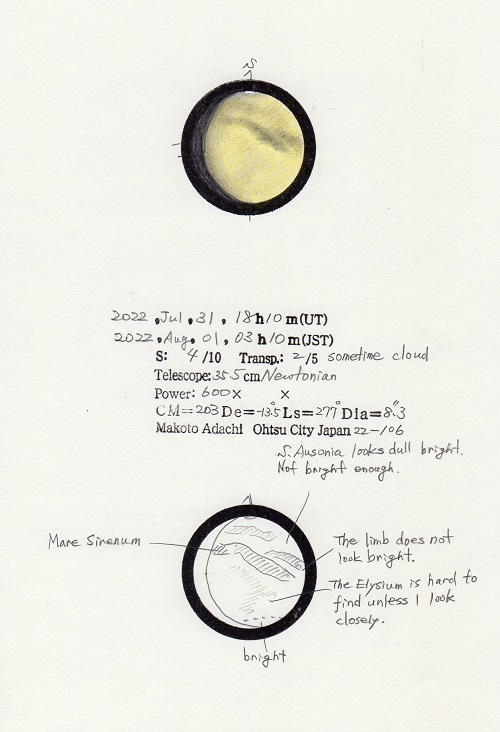 S
2022, Jul, 31, 18h10m(UT)
2022, Aug, 01, 03h10m(JST)
S: 4/10 Transp.: 2/5 sometime cloud
Telescope: 35.5cm Newtonian
Power: 600× ×
CM=203 De=-13.5° Ls=277° Dia=8."3
Makoto Adachi Ohtsu City Japan 22-106
S. Ausonia looks dull bright.
Not bright enough.
Mare Sirenum
The limb does not
look bright.
The Elysium is hard to
find unless I look
closely.
bright